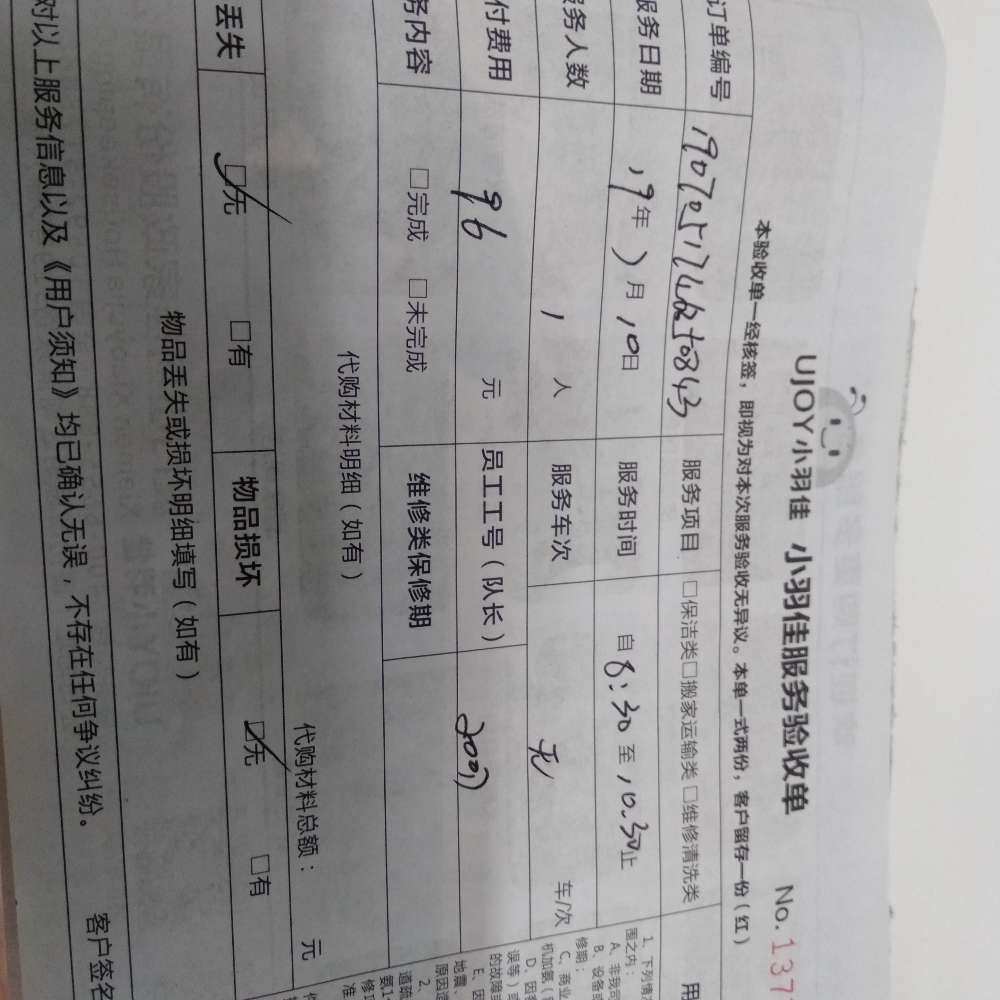 UJOY小羽佳 小羽佳服务验收单 No.137
本验收单一经核签，即视为对本次服务验收无异议。本单一式两份，客户留存一份（红）
订单编号 服务项目 □保洁类□搬家运输类□维修清洗类
服务日期 19年7月10日 服务时间 自8:30至10:30止
服务人数 1人 服务车次 无 车/次
付费用 96 元 员工工号（队长）
务内容 □完成 □未完成 维修类保修期
代购材料明细（如有） 代购材料总额： 元
丢失 ☑无 □有 物品损坏 ☑无 □有
物品丢失或损坏明细填写（如有）
对以上服务信息以及《用户须知》均已确认无误，不存在任何争议纠纷。 客户签名
用
1、下列情
围之内：
A、非我司
B、设备
修期；
C、商业
机加氨（
D、因
误等）
的故障
E、因
地震、
原因
2、
道疏